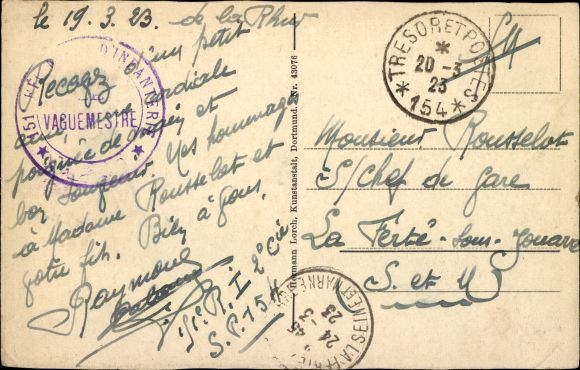 le 19.3.23. de la Rhur
Recevez un petit
cordiale
poignée de main et
bon souvenir. Mes hommages
à Madame Rousselot et
votre fils. Bien à vous.
Raymond
151e R. I 2e Cie
S.P. 154
151 D'INFANTERIE
VAGUEMESTRE
Hermann Lorch, Kunstanstalt, Dortmund. Nr. 43076
TRESOR ET POSTES
20-3
23
154
FM
Monsieur Rousselot
S/Chef de gare
La Ferté-sous-Jouarre
S. et M.
SEINE ET MARNE
24-3
23